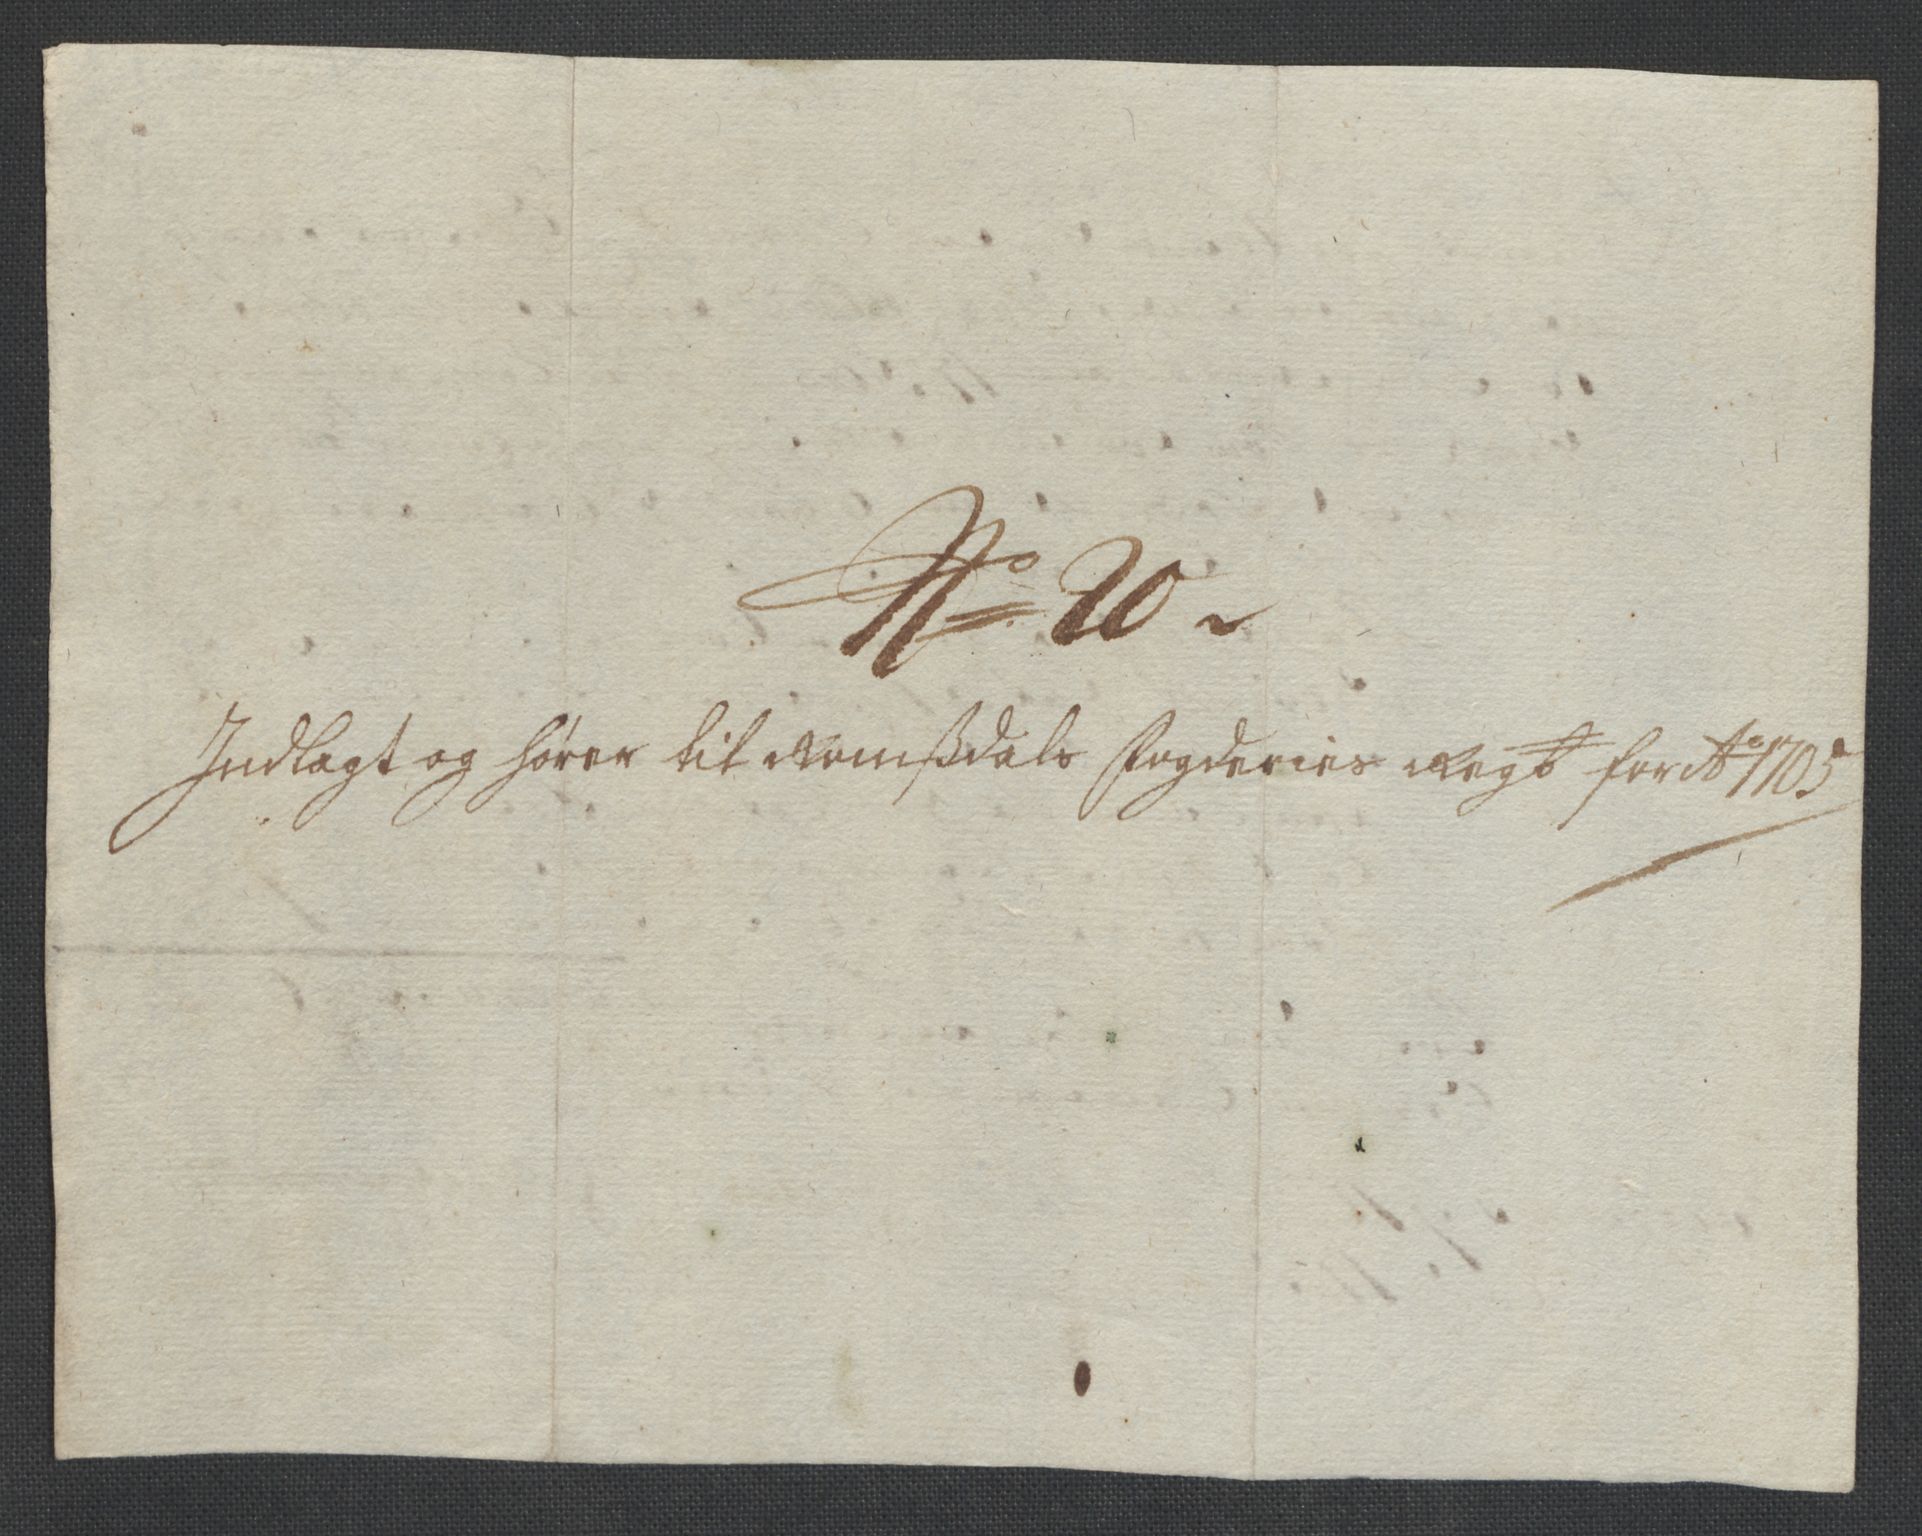 No 20
Indlagt og hører til Romßdals fogderies Regb for Ao 1705